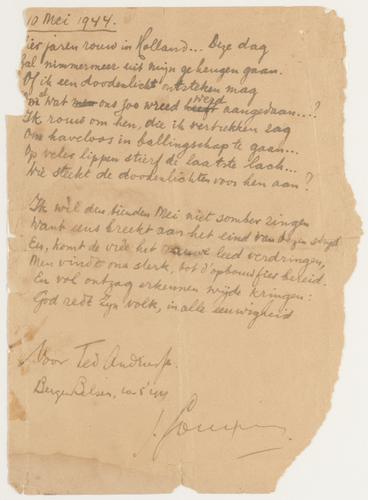 10 Mei 1944.
Vier jaren rouw in Holland... Deze dag
Zal nimmermeer uit mijn geheugen gaan.
Of ik een doodenlicht ontsteken mag
wat ons zoo wreed werd aangedaan...?
Ik rouw om hen, die ik vertrekken zag
Om haveloos in ballingschap te gaan...
Op veler lippen stierf de laatste lach...
Wie steekt de doodenlichten voor hen aan?
Ik wil den tienden Mei niet somber zingen
Want eens breekt aan het eind van dezen strijd
En, komt de vrede het leed verdringen,
Men vindt ons sterk, tot d'opbouw fier bereid.
En vol ontzag erkennen wijde kringen:
God redt zijn volk, in alle eeuwigheid
Voor Ted
Bergen Belsen,